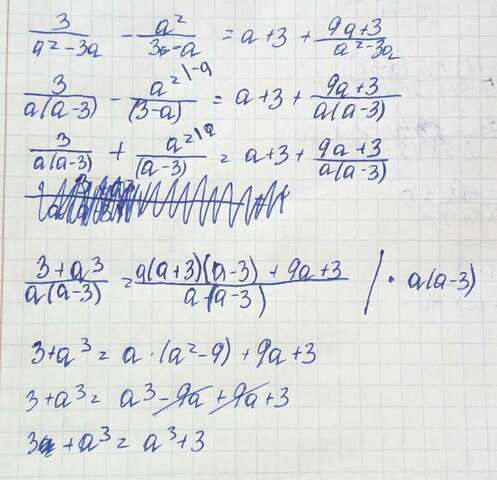 3/(a²-3a) - a²/(3-a) = a+3 + (9a+3)/(a²-3a)
3/(a(a-3)) - a² \-a/(3-a) = a+3 + (9a+3)/(a(a-3))
3/(a(a-3)) + a² \a/(a-3) = a+3 + (9a+3)/(a(a-3))
(3+a³)/(a(a-3)) = (a(a+3)(a-3)+9a+3)/(a(a-3)) / · a(a-3)
3+a³ = a·(a²-9)+9a+3
3+a³ = a³-9a+9a+3
3+a³ = a³+3